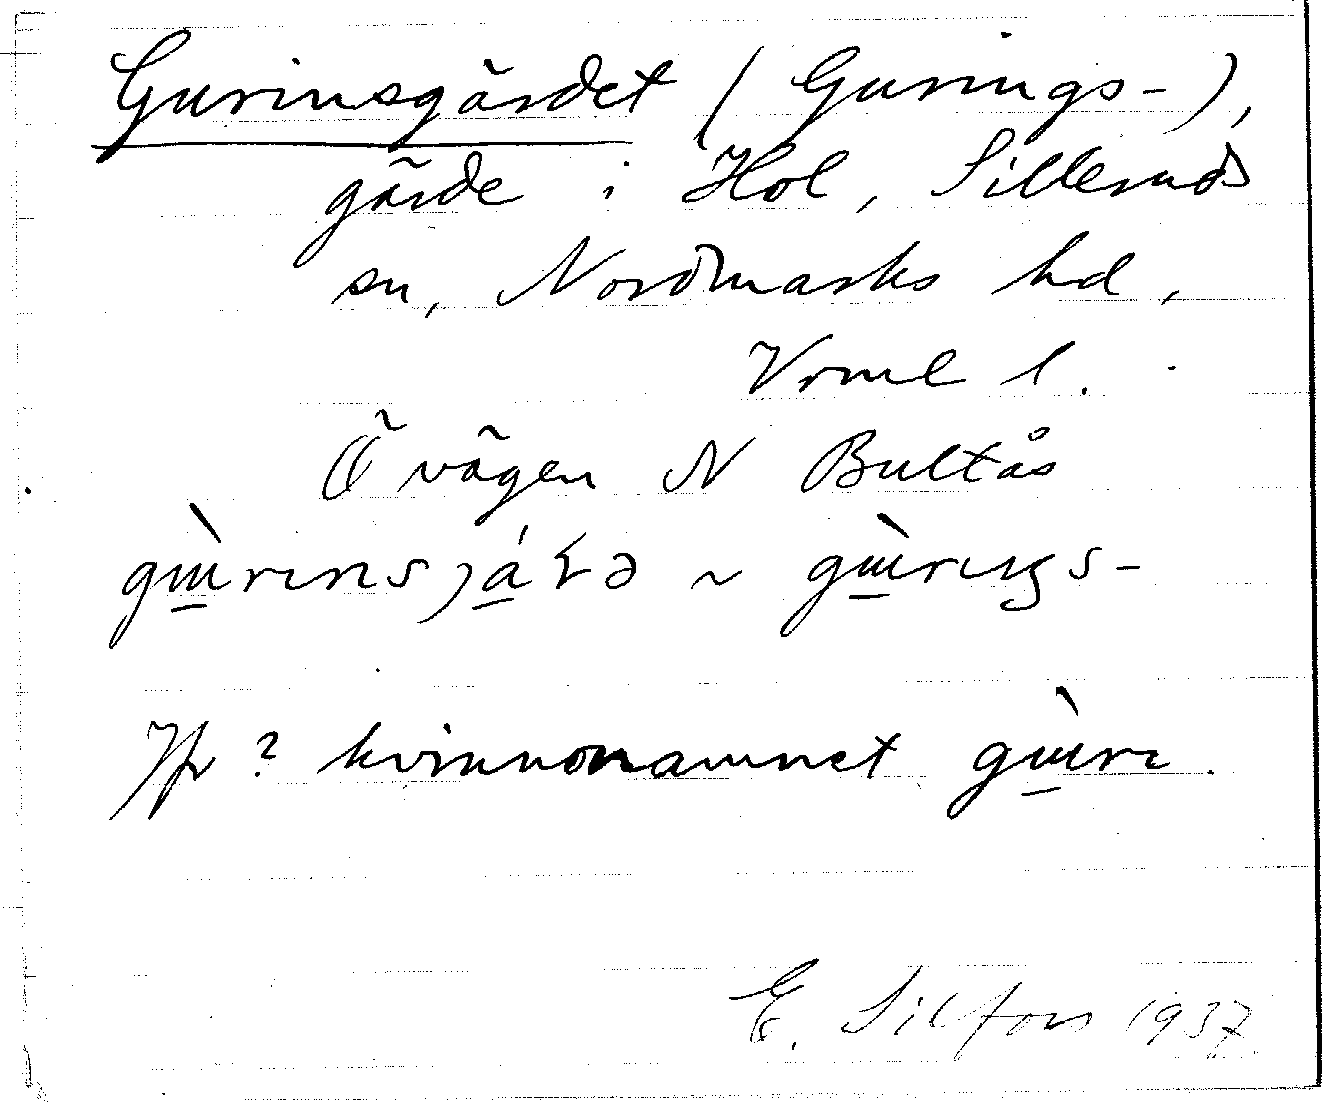 Gurinsgärdet (Gurings-),
gärde i Hol, Silleruds
sn, Nordmarks hd,
Vrml l.
Ö vägen N Bultås
gɯ̀rɩnsjáꞎə ~ gɯ̀rɩŋs-
Jfr ? kvinnonamnet gɯ̀rɩ.
E. Silfors 1937